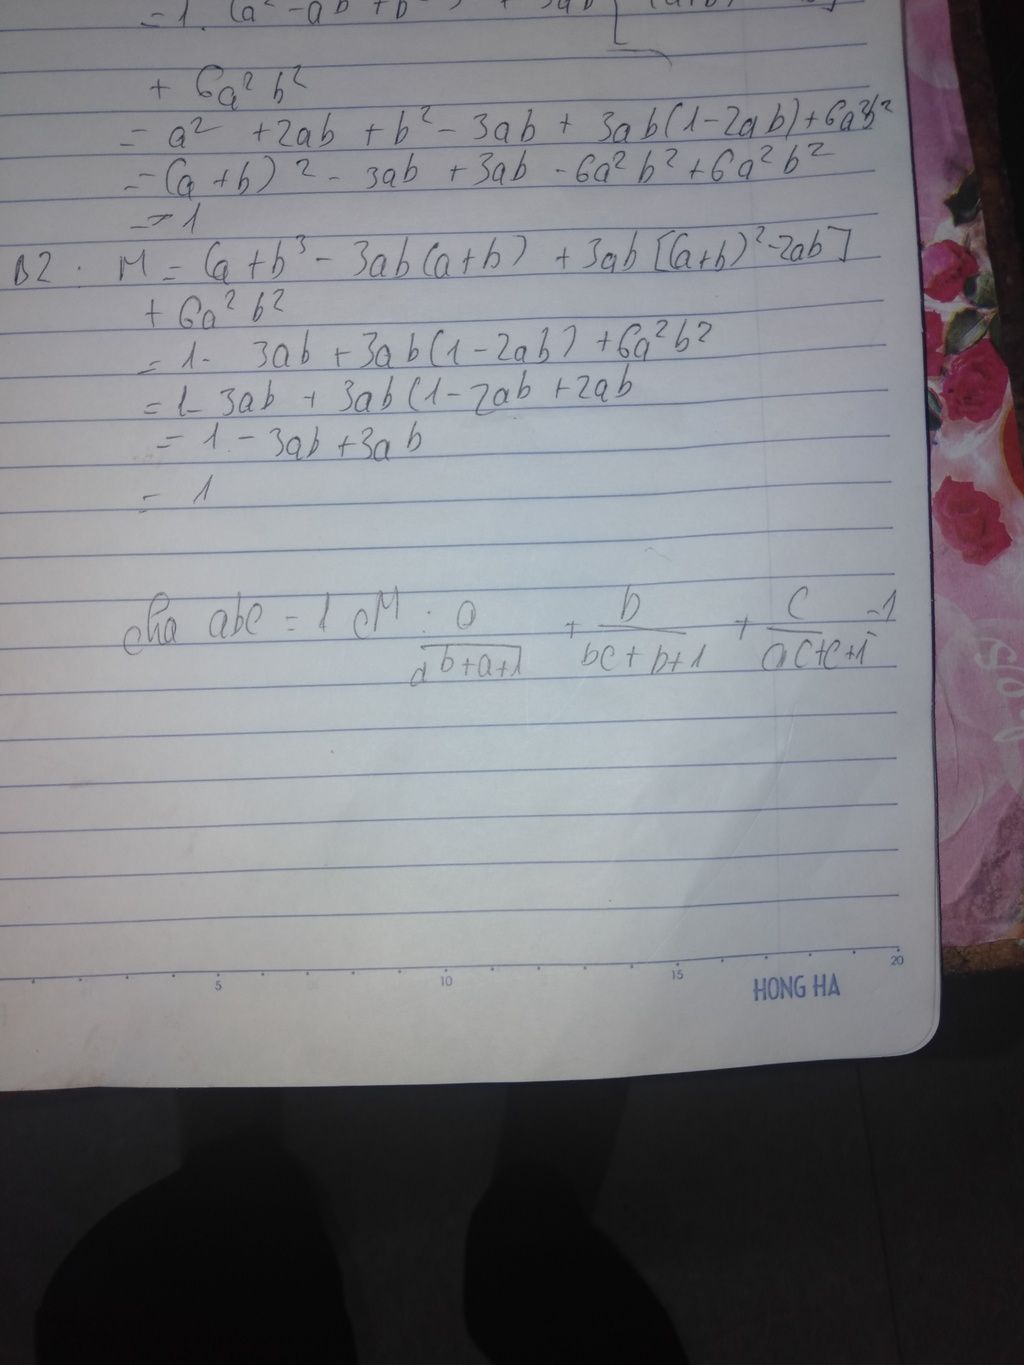 = 1. (a² - ab + b²) + 3ab [(a+b)
+ 6a² b²
= a² + 2ab + b² - 3ab + 3ab(1-2ab) + 6a²b²
= (a+b)² - 3ab + 3ab - 6a² b² + 6a² b²
= 1
B2 : M = (a+b³ - 3ab(a+b) + 3ab [(a+b)² - 2ab]
+ 6a² b²
= 1 - 3ab + 3ab(1-2ab) + 6a²b²
= 1 - 3ab + 3ab(1-2ab + 2ab
= 1 - 3ab + 3ab
= 1
cho abc = 1 CM : a/(ab+a+1) + b/(bc+b+1) + c/(ac+c+1) = 1
5 10 15 20
HONG HA